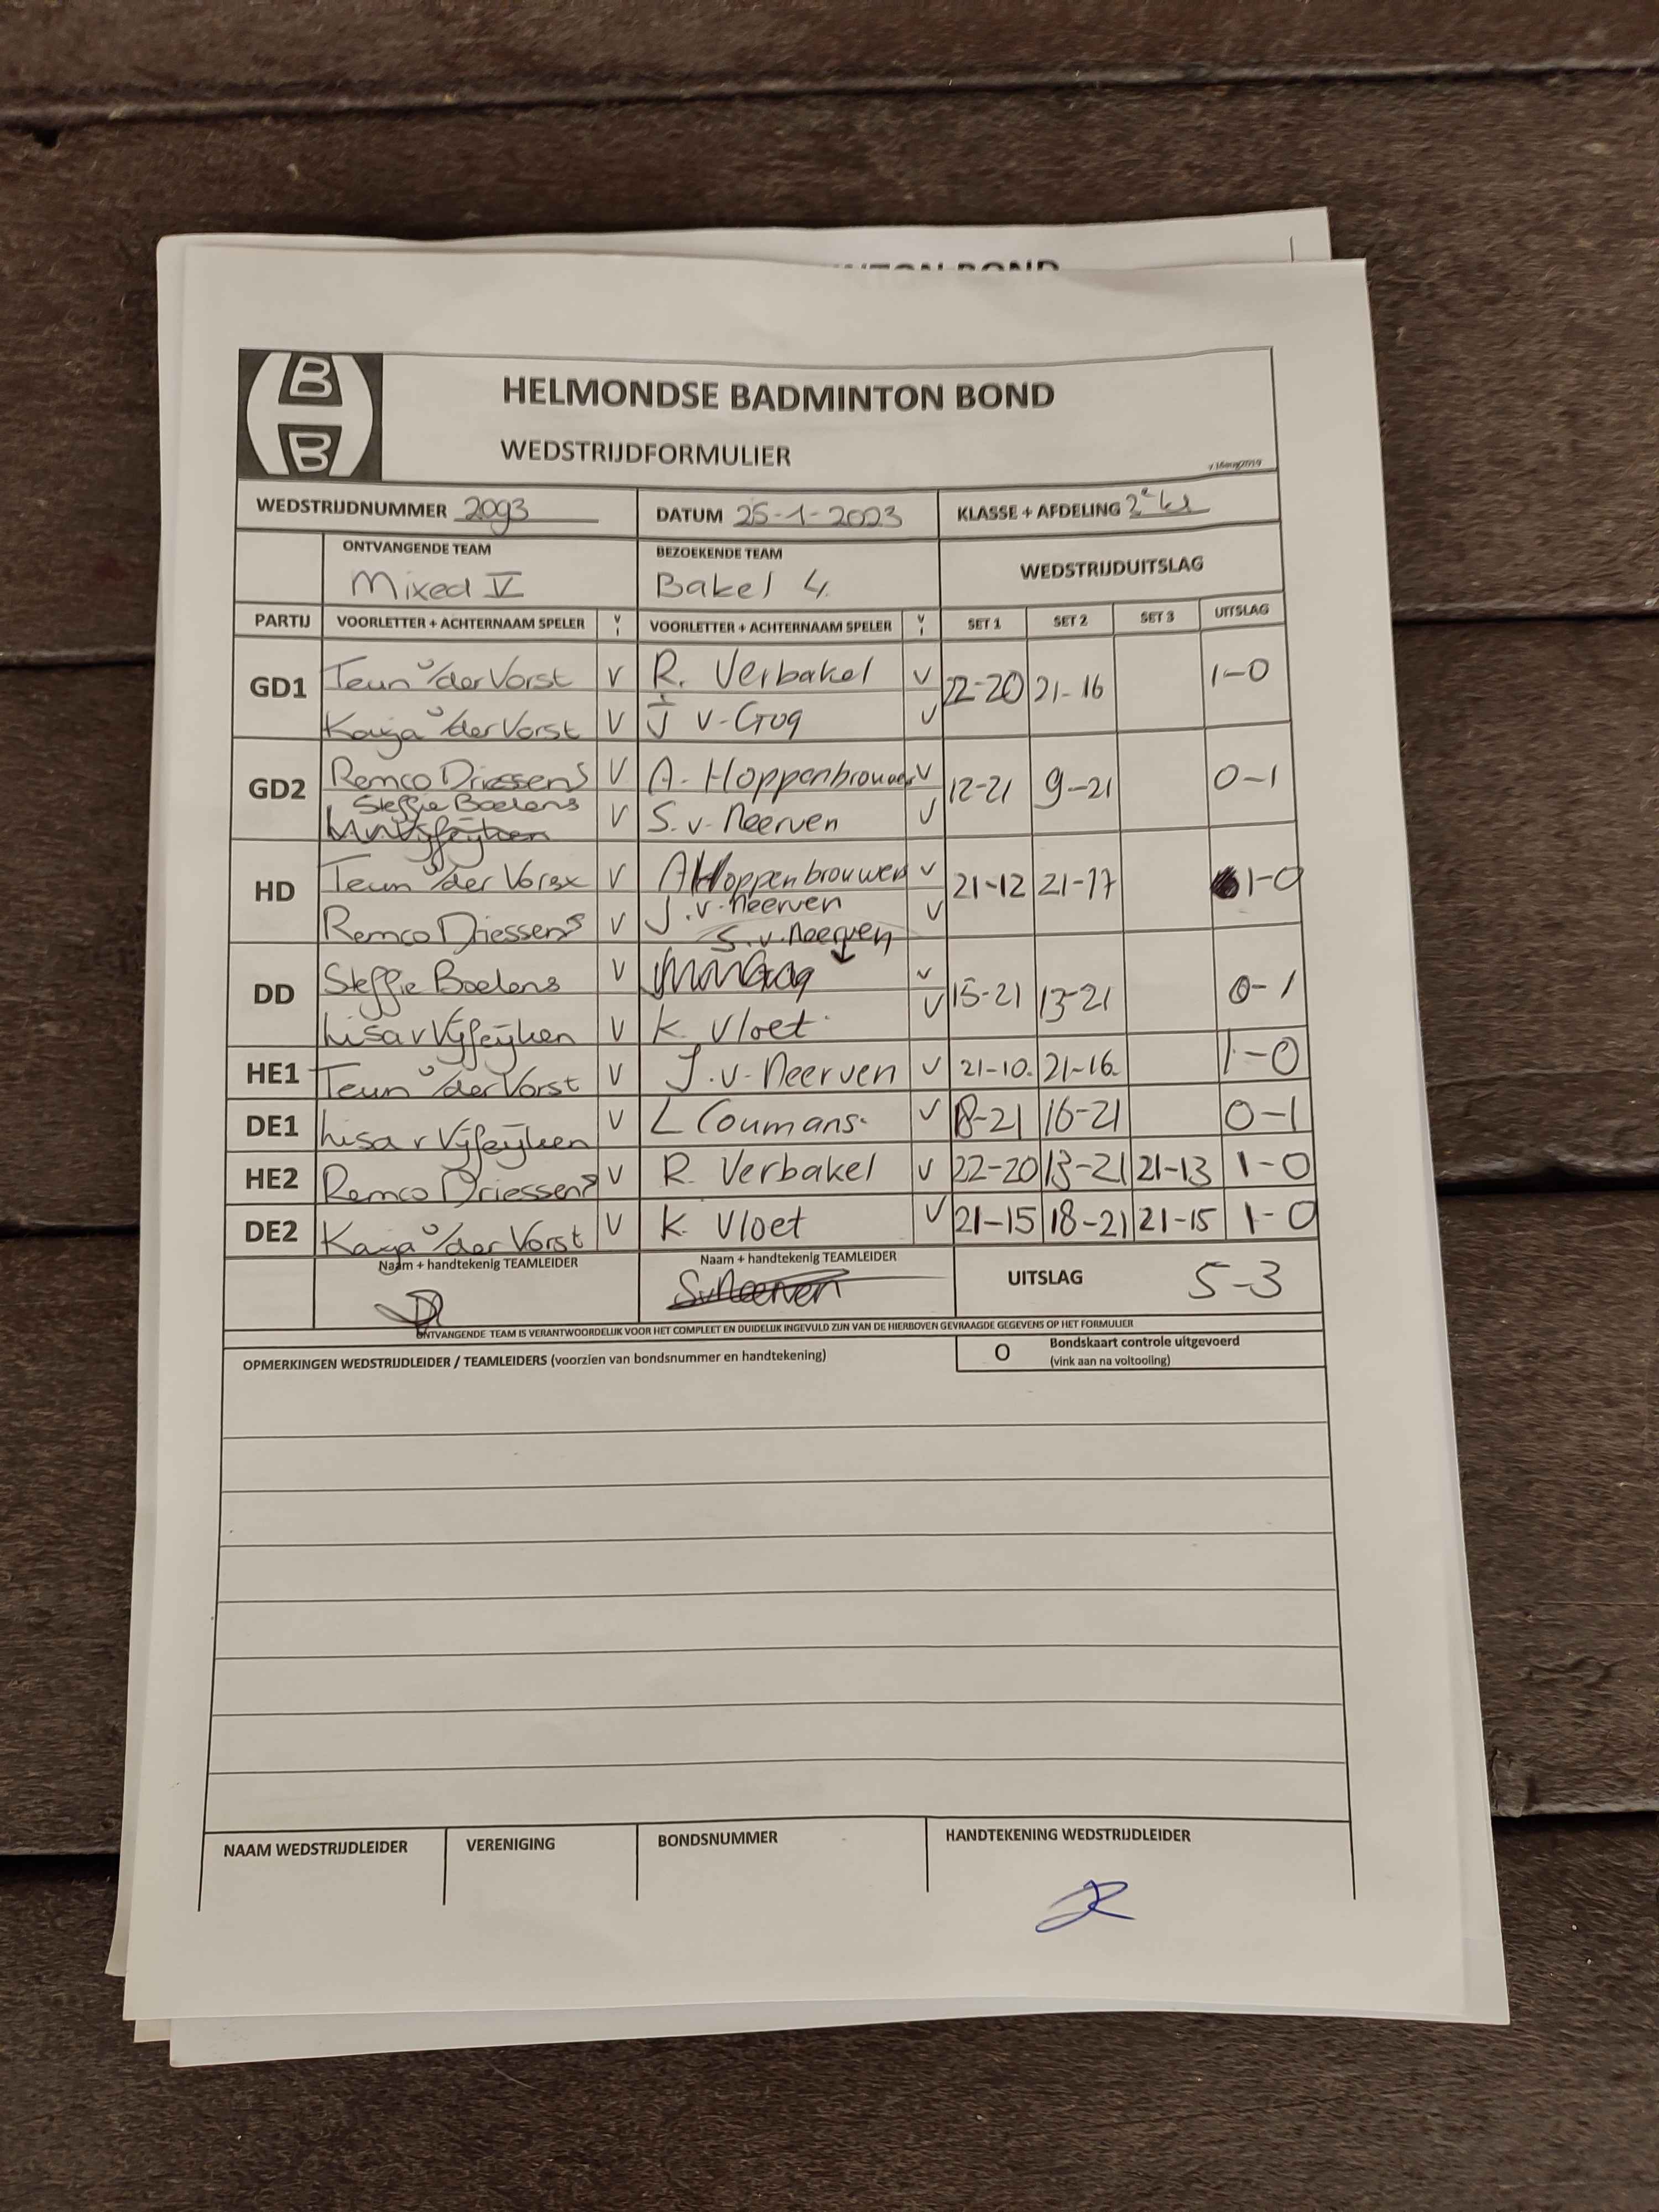 TON BOND
B
B
HELMONDSE BADMINTON BOND
WEDSTRIJDFORMULIER
WEDSTRIJDNUMMER 2093 DATUM 25-1-2023 KLASSE + AFDELING 2e kl
ONTVANGENDE TEAM BEZOEKENDE TEAM WEDSTRIJDUITSLAG
Mixed V Bakel 4
PARTIJ VOORLETTER + ACHTERNAAM SPELER V I VOORLETTER + ACHTERNAAM SPELER V I SET 1 SET 2 SET 3 UITSLAG
GD1 Teun v/der Vorst V R. Verbakel V 22-20 21-16 1-0
Kaya v/der Vorst V J v. Gog V
GD2 Remco Driessens V A. Hoppenbrouwers V 12-21 9-21 0-1
Steffie Boelens V S. v. Neerven V
HD Teun v/der Vorst V A Hoppenbrouwers V 21-12 21-17 1-0
Remco Driessens V J. v. Neerven V
S. v. Neerven
DD Steffie Boelens V V 15-21 13-21 0-1
Lisa v Vijfeijken V K. Vloet V
HE1 Teun v/der Vorst V J. v. Neerven V 21-10 21-16 1-0
DE1 Lisa v Vijfeijken V L Coumans V 18-21 16-21 0-1
HE2 Remco Driessens V R. Verbakel V 22-20 13-21 21-13 1-0
DE2 Kaya v/der Vorst V K. Vloet V 21-15 18-21 21-15 1-0
Naam + handtekenig TEAMLEIDER Naam + handtekenig TEAMLEIDER UITSLAG 5-3
SvNeerven
ONTVANGENDE TEAM IS VERANTWOORDELIJK VOOR HET COMPLEET EN DUIDELIJK INGEVULD ZIJN VAN DE HIERBOVEN GEVRAAGDE GEGEVENS OP HET FORMULIER
OPMERKINGEN WEDSTRIJDLEIDER / TEAMLEIDERS (voorzien van bondsnummer en handtekening) O Bondskaart controle uitgevoerd
(vink aan na voltooling)
NAAM WEDSTRIJDLEIDER VERENIGING BONDSNUMMER HANDTEKENING WEDSTRIJDLEIDER